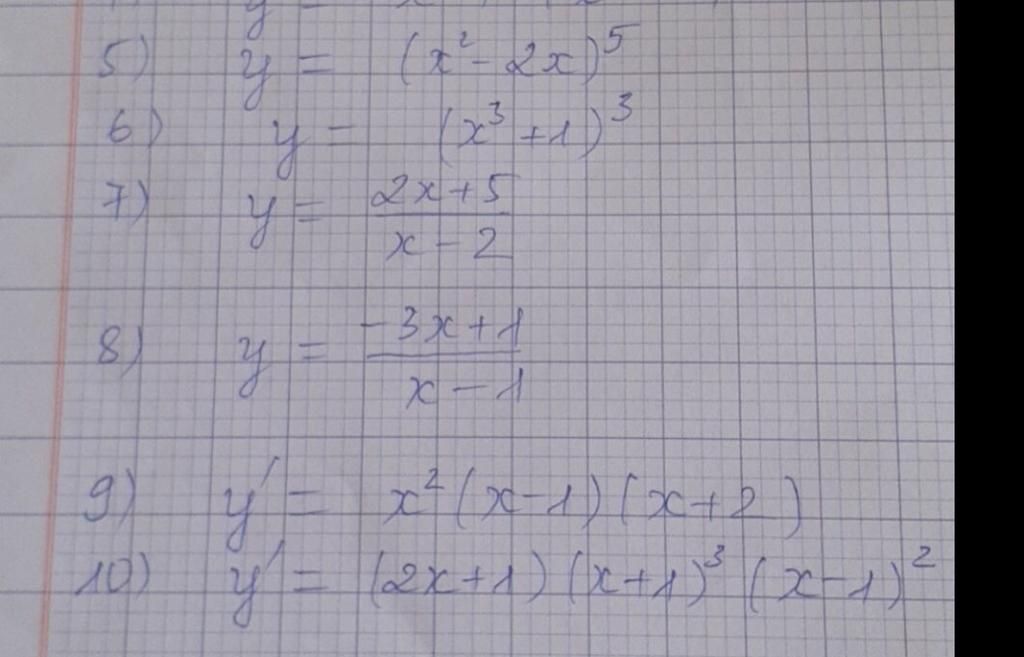 5) y = (x² - 2x)⁵
6) y = (x³ + 1)³
7) y = (2x + 5)/(x - 2)
8) y = (-3x + 1)/(x - 1)
9) y' = x² (x - 1) (x + 2)
10) y' = (2x + 1) (x + 1)³ (x - 1)²